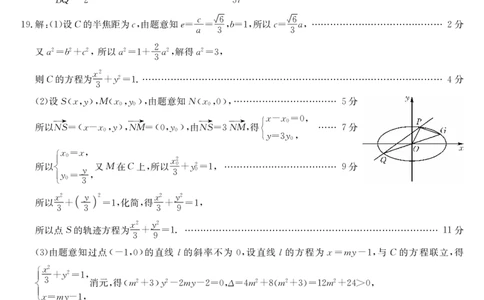 19.解:(1)设C的半焦距为c,由题意知e=c/a=√6/3,b=1,所以c=√6/3 a, …… 2分
又a²=b²+c²,所以a²=1+2/3 a²,解得a²=3,
则C的方程为x²/3+y²=1. …… 4分
(2)设S(x,y),M(x₀,y₀),由题意知N(x₀,0), …… 5分
所以NS→=(x-x₀,y),NM→=(0,y₀),由NS→=3NM→,得{x-x₀=0, y=3y₀, …… 7分
所以{x₀=x, y₀=y/3, 又M在C上,所以x₀²/3+y₀²=1, …… 9分
所以x²/3+(y/3)²=1,化简,得x²/3+y²/9=1,
所以点S的轨迹方程为x²/3+y²/9=1. …… 11分
(3)由题意知过点(-1,0)的直线l的斜率不为0,设直线l的方程为x=my-1,与C的方程联立,得
{x²/3+y²=1, x=my-1, 消元,得(m²+3)y²-2my-2=0,Δ=4m²+8(m²+3)=12m²+24>0,
y
P
G
O
x
Q